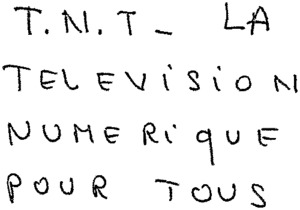 T.N.T_ LA
TELEViSiON
NUMERiQUE
POUR TOUS